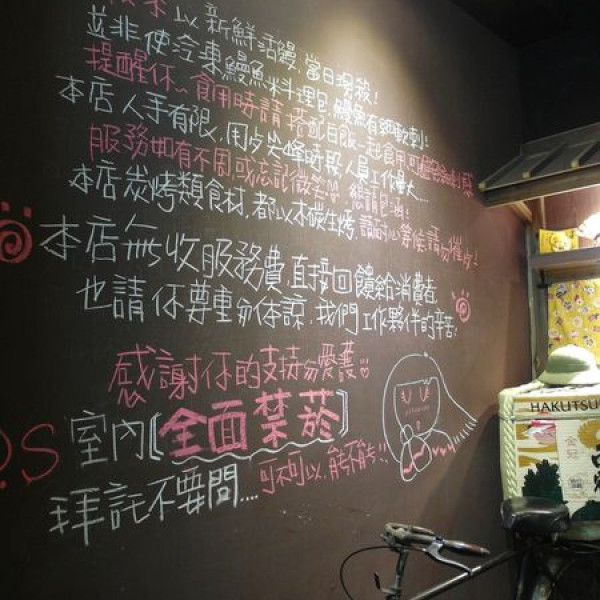 以新鮮活鰻,當日現殺!
並非使冷凍鰻魚料理包,鰻魚有細軟刺!
提醒你~食用時請搭配白飯一起食用可
本店人手有限,用歺尖峰時段人員工作量大...
服務如有不周或忘記微笑,總請包涵!
本店炭烤類食材,都以木碳生烤,請耐心等候,請勿催少!
本店無收服務費,直接回饋給消費者
也請你尊重勿体諒,我們工作夥伴的辛苦.
感謝你的支持勿愛護
P.S 室內【全面禁菸】
拜託不要問....可不可以,能不能!!
HAKUTSU
金冠